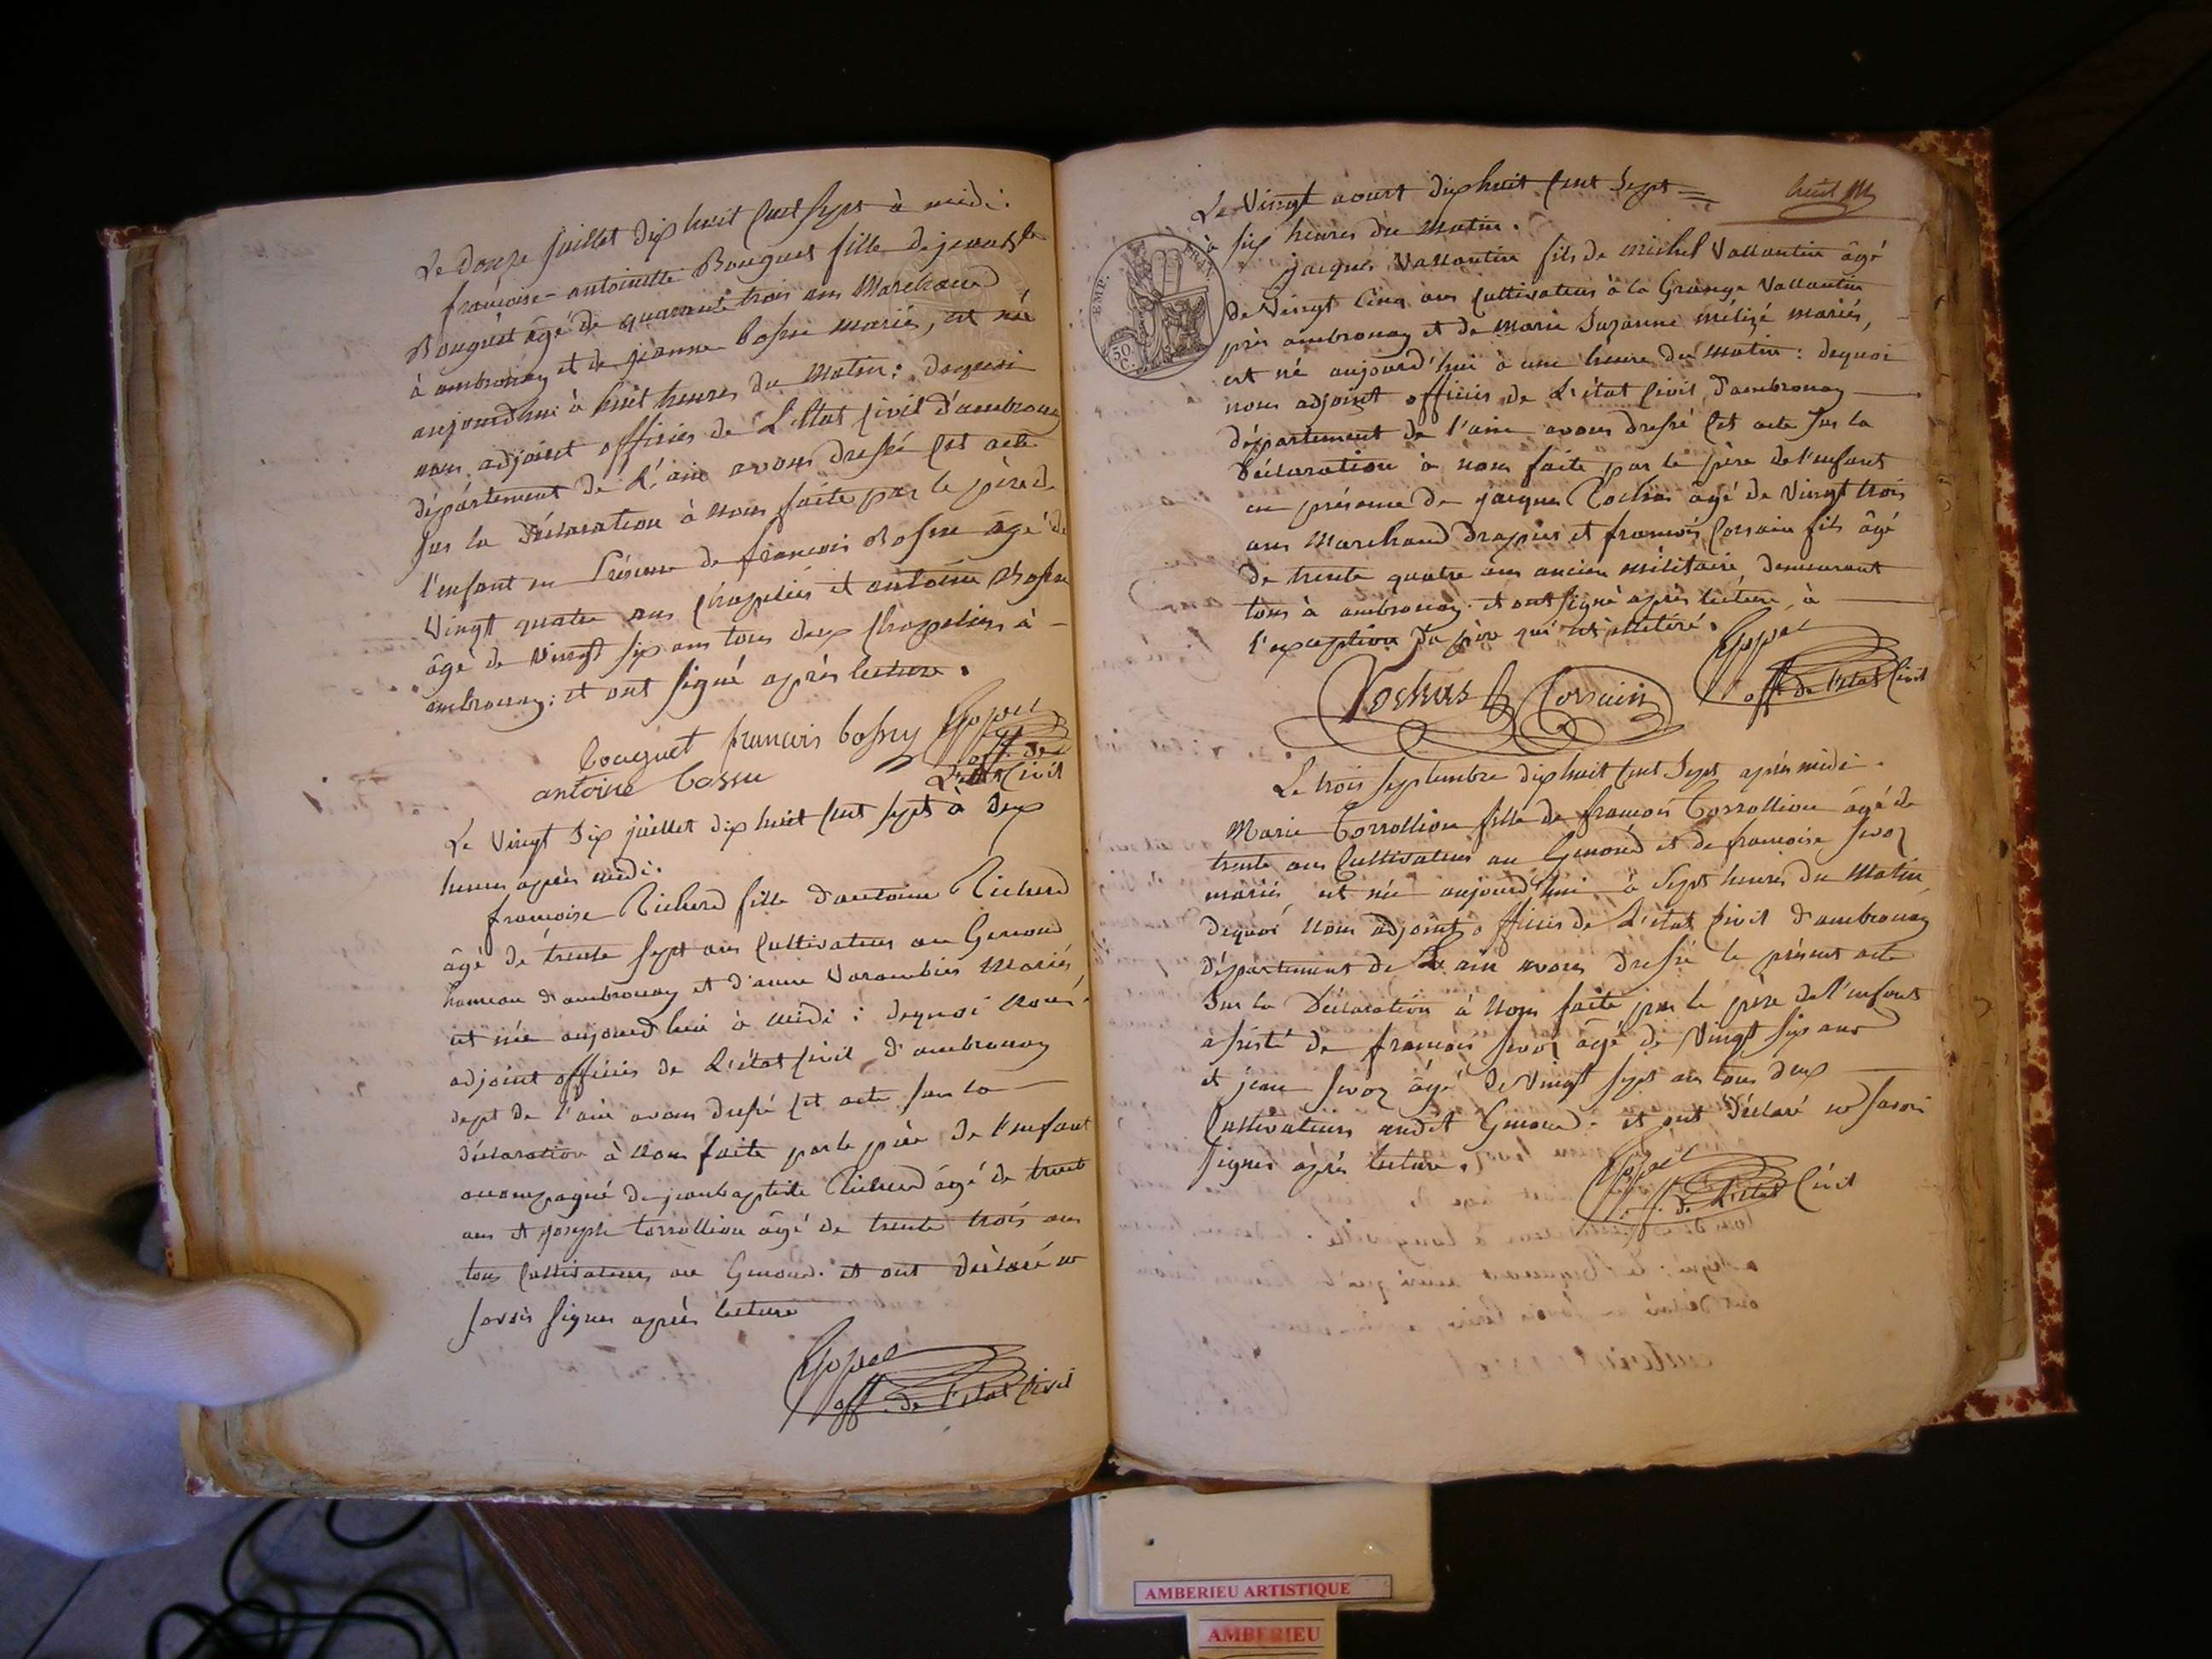 Le Douze juillet dix huit cent sept à midi.
françoise-antoinette Bouguet fille de jeanbte
Bouguet âgé de quarante trois ans Marchand
à ambronay et de jeanne bossu mariés, est née
aujourdhui à huit heures du Matin: dequoi
nous adjoint officier de L'Etat civil d'ambronay
département de L'ain avons dressé cet acte
sur la Déclaration à nous faite par le père de
l'enfant en présence de françois Bossu âgé de
Vingt quatre ans chapelier et antoine Bossu
âgé de Vingt six ans tous deux chapeliers à
ambronay: et ont signé après lecture.
bouguet françois bossu
off. de
antoine bossu
L'Etat Civil
Le Vingt Six juillet dix huit cent sept à deux
heures après midi.
françoise Richerd fille d'antoine Richerd
âgé de trente sept ans Cultivateur au Genoud
hameau d'ambronay et d'anne Varambier Mariés
est née aujourd'hui à midi: dequoi Nous
adjoint officier de L'état civil d'ambronay
dept de l'ain avons dressé cet acte sur la
déclaration à Nous faite par le père de l'enfant
accompagné de jeanbaptiste Richerd âgé de trente
ans et joseph torrollion âgé de trente trois ans
tous Cultivateurs au Genoud. et ont déclaré ne
savoir signer après lecture
off. de l'état Civil
huit
Le Vingt aoust dix huit cent sept
à six heures du Matin.
EMP. FRAN.
50 C.
jacques Vallantin fils de michel Vallantin âgé
de Vingt cinq ans cultivateur à la Grange Vallantin
près ambronay et de Marie Suzanne mélizé mariés,
est né aujourd'hui à une heure du matin: dequoi
nous adjoint officier de L'état Civil d'ambronay
département de l'ain avons dressé cet acte sur la
Déclaration à nous faite par le père de l'enfant
en présence de jacques Rochas âgé de Vingt trois
ans Marchand Drapier et françois Corsain fils âgé
de trente quatre ans ancien militaire, demeurant
tous à ambronay. et ont signé après lecture, à
l'exception du père qui est illétéré.
Rochas Corsain
off. de l'état Civil
Le trois septembre dix huit cent Sept après midi.
Marie Torrollion fille de françois Torrollion âgé de
trente ans Cultivateur au Genoud et de françoise juoz
mariés, est née aujourd'hui à Sept heures du Matin
Dequoi Nous adjoint officier de L'état Civil d'ambronay
Département de L'ain avons dressé le présent acte
Sur la Déclaration à Nous faite par le père de l'enfant
assisté de françois juoz âgé de Vingt six ans
et jean juoz âgé de Vingt sept ans tous deux
Cultivateurs audit Genoud. et ont Déclaré ne savoir
signer après lecture.
off. de l'état Civil
AMBERIEU ARTISTIQUE
AMBERIEU